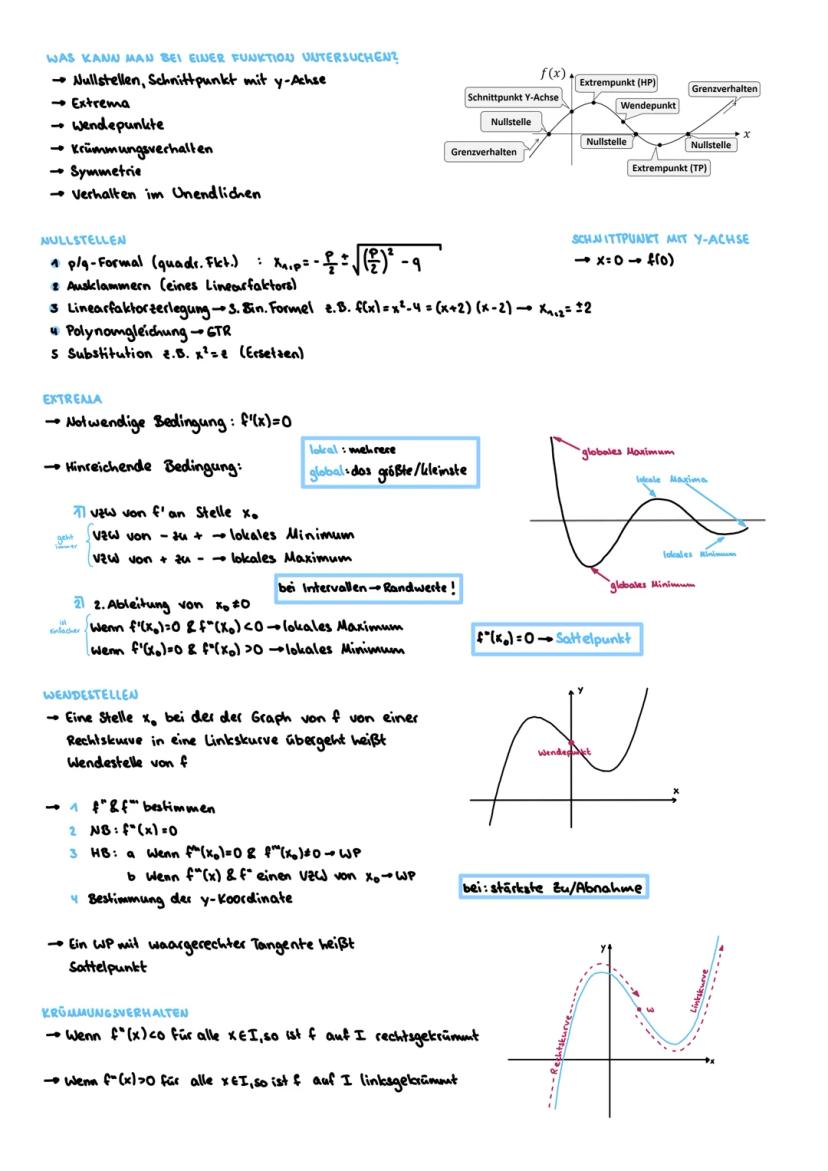 WAS KANN MAN BEI EINER FUNKTION UNTERSUCHEN?
→ Nullstellen, Schnittpunkt mit y-Achse
→ Extrema
→ Wendepunkte
→ Krümmungsverhalten
→ Symmetrie
→ Verhalten im Unendlichen
f(x)
Extrempunkt (HP)
Grenzverhalten
Schnittpunkt Y-Achse
Wendepunkt
Nullstelle
x
Nullstelle
Nullstelle
Grenzverhalten
Extrempunkt (TP)
NULLSTELLEN
1 p/q-Formal (quadr. Fkt.) : x₁,p = - p/2 ± √((p/2)² - q
2 Ausklammern (eines Linearfaktors)
3 Linearfaktorzerlegung → 3. Bin. Formel z.B. f(x) = x²-4 = (x+2) (x-2) → x₁,₂ = ±2
4 Polynomgleichung → GTR
5 Substitution z.B. x² = z (Ersetzen)
SCHNITTPUNKT MIT Y-ACHSE
→ x=0 → f(0)
EXTREMA
→ Notwendige Bedingung : f'(x)=0
→ Hinreichende Bedingung:
lokal : mehrere
global: das größte/kleinste
1) VZW von f' an Stelle x₀
geht immer
VZW von - zu + → lokales Minimum
VZW von + zu - → lokales Maximum
bei Intervallen → Randwerte!
2) 2. Ableitung von x₀ ≠0
ist einfacher
Wenn f'(x₀)=0 & f"(x₀) <0 → lokales Maximum
Wenn f'(x₀)=0 & f"(x₀) >0 → lokales Minimum
f"(x₀) = 0 → Sattelpunkt
globales Maximum
lokale Maxima
lokales Minimum
globales Minimum
WENDESTELLEN
→ Eine Stelle x₀ bei der der Graph von f von einer
Rechtskurve in eine Linkskurve übergeht heißt
Wendestelle von f
→ 1 f" & f"' bestimmen
2 NB: f"(x) = 0
3 HB: a Wenn f"(x₀)=0 & f"'(x₀)≠0 → WP
b Wenn f"(x) & f" einen VZW von x₀ → WP
4 Bestimmung der y-Koordinate
y
Wendepunkt
x
bei: stärkste Zu/Abnahme
→ Ein WP mit waargerechter Tangente heißt
Sattelpunkt
KRÜMMUNGSVERHALTEN
→ Wenn f"(x)<0 für alle x∈I, so ist f auf I rechtsgekrümmt
→ Wenn f"(x)>0 für alle x∈I, so ist f auf I linksgekrümmt
y
Rechtskurve
W
Linkskurve
x